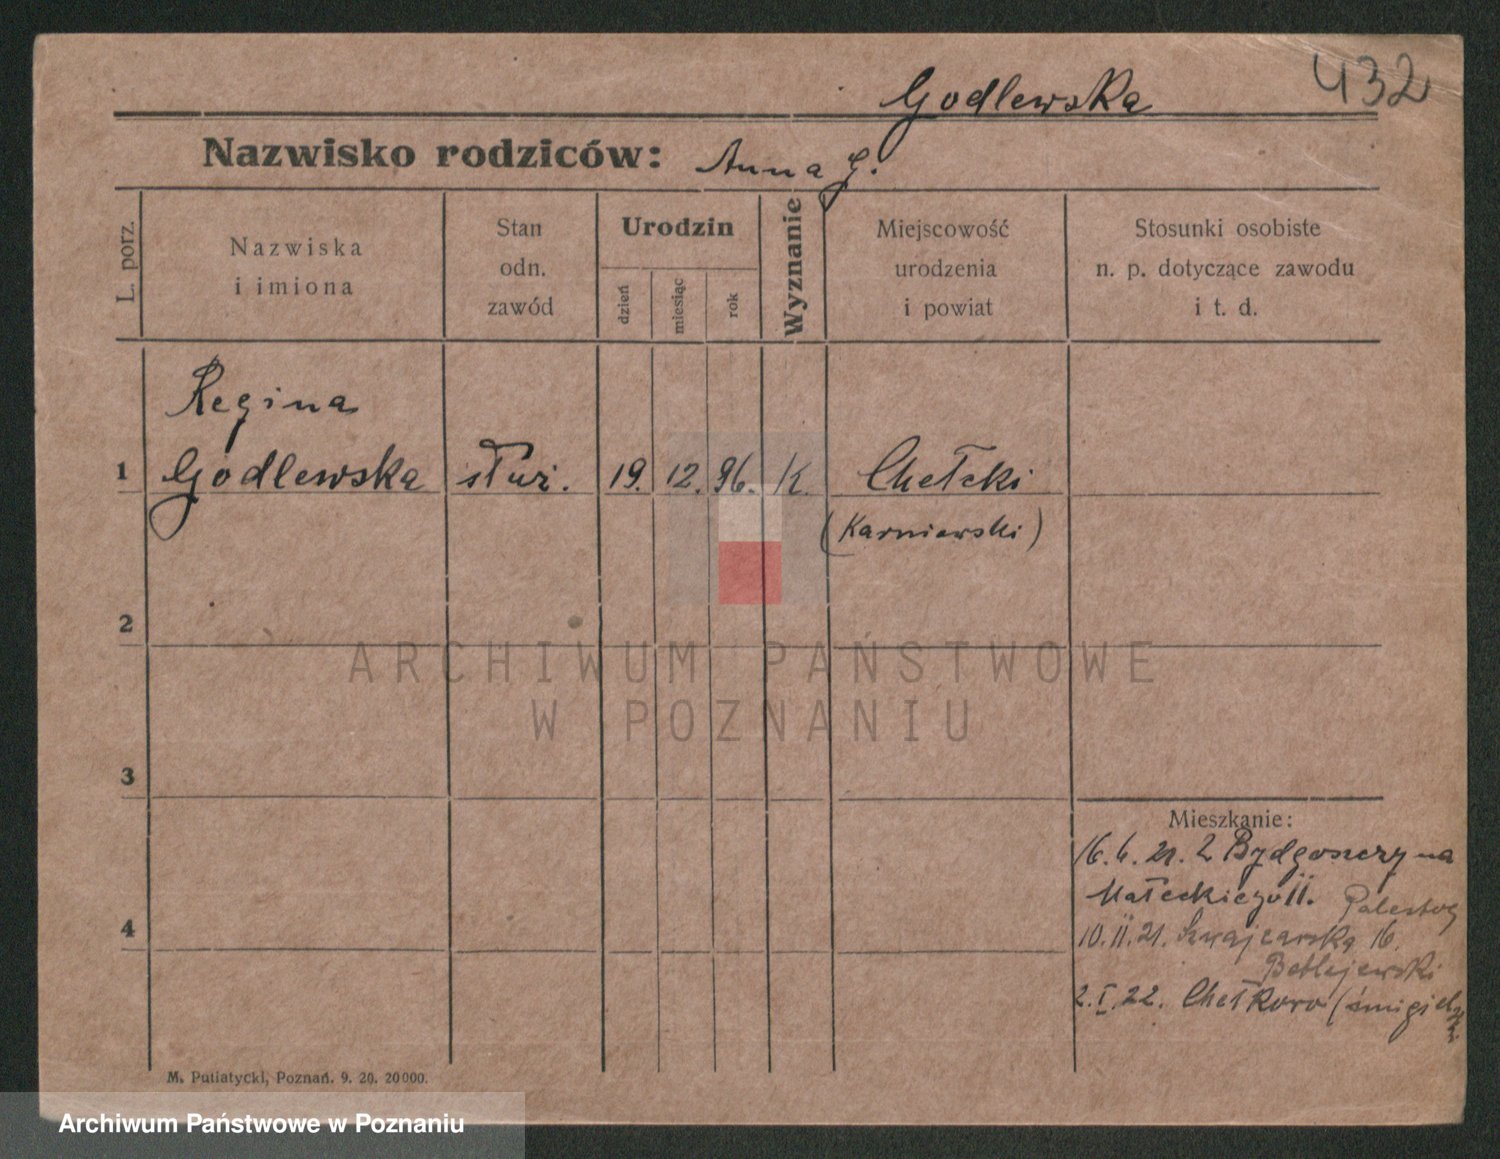 432
Godlewska
Nazwisko rodziców: Anna G.
L. porz.
Nazwiska
i imiona
Stan
odn.
zawód
Urodzin
dzień
miesiąc
rok
Wyznanie
Miejscowość
urodzenia
i powiat
Stosunki osobiste
n. p. dotyczące zawodu
i t. d.
Regina
1 Godlewska służ. 19. 12. 96. K. Chełcki
(Karniewski)
2
ARCHIWUM PAŃSTWOWE
W POZNANIU
3
Mieszkanie:
16.6.21. z Bydgoszczy na
Małeckiego 11.
4
10.II.21. Szwajcarska 16.
2.I.22. Chełkowo (śmigielski
M. Putiatycki, Poznań. 9. 20. 20000.
Archiwum Państwowe w Poznaniu